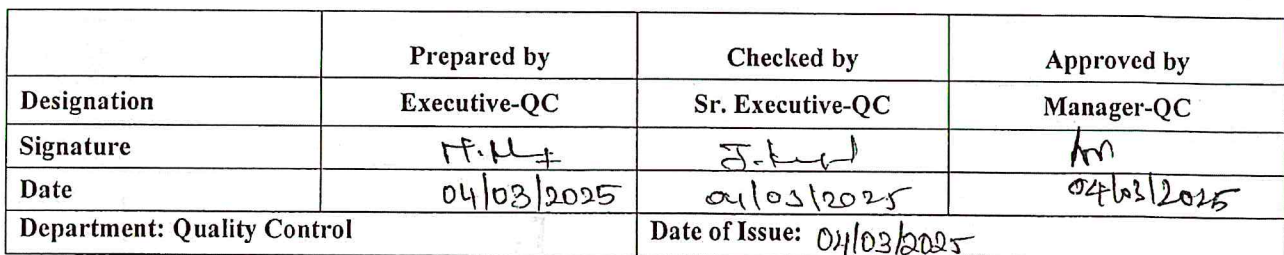 Prepared by Checked by Approved by
Designation Executive-QC Sr. Executive-QC Manager-QC
Signature
Date 04/03/2025 04/03/2025 04/03/2025
Department: Quality Control Date of Issue: 04/03/2025